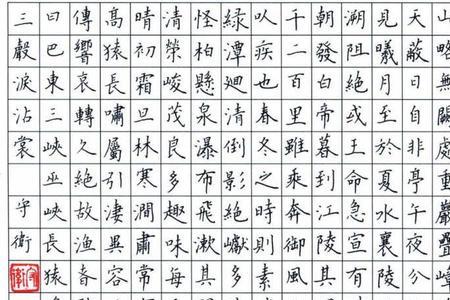 山略無闕處重巖疊嶂
天蔽日自非亭午夜分
見曦月至於夏水襄陵
溯阻絕或王命急宣有
朝發白帝暮到江陵其
千二百里雖乘奔御風
以疾也春冬之時則素
綠潭迴清倒影絕巘多
怪柏懸泉瀑布飛漱其
清榮峻茂良多趣味每
晴初霜旦林寒澗肅常
高猿長嘯屬引淒異
傳響哀轉久絕故漁
曰巴東三峽巫峽長猿
三聲淚沾裳
守衛